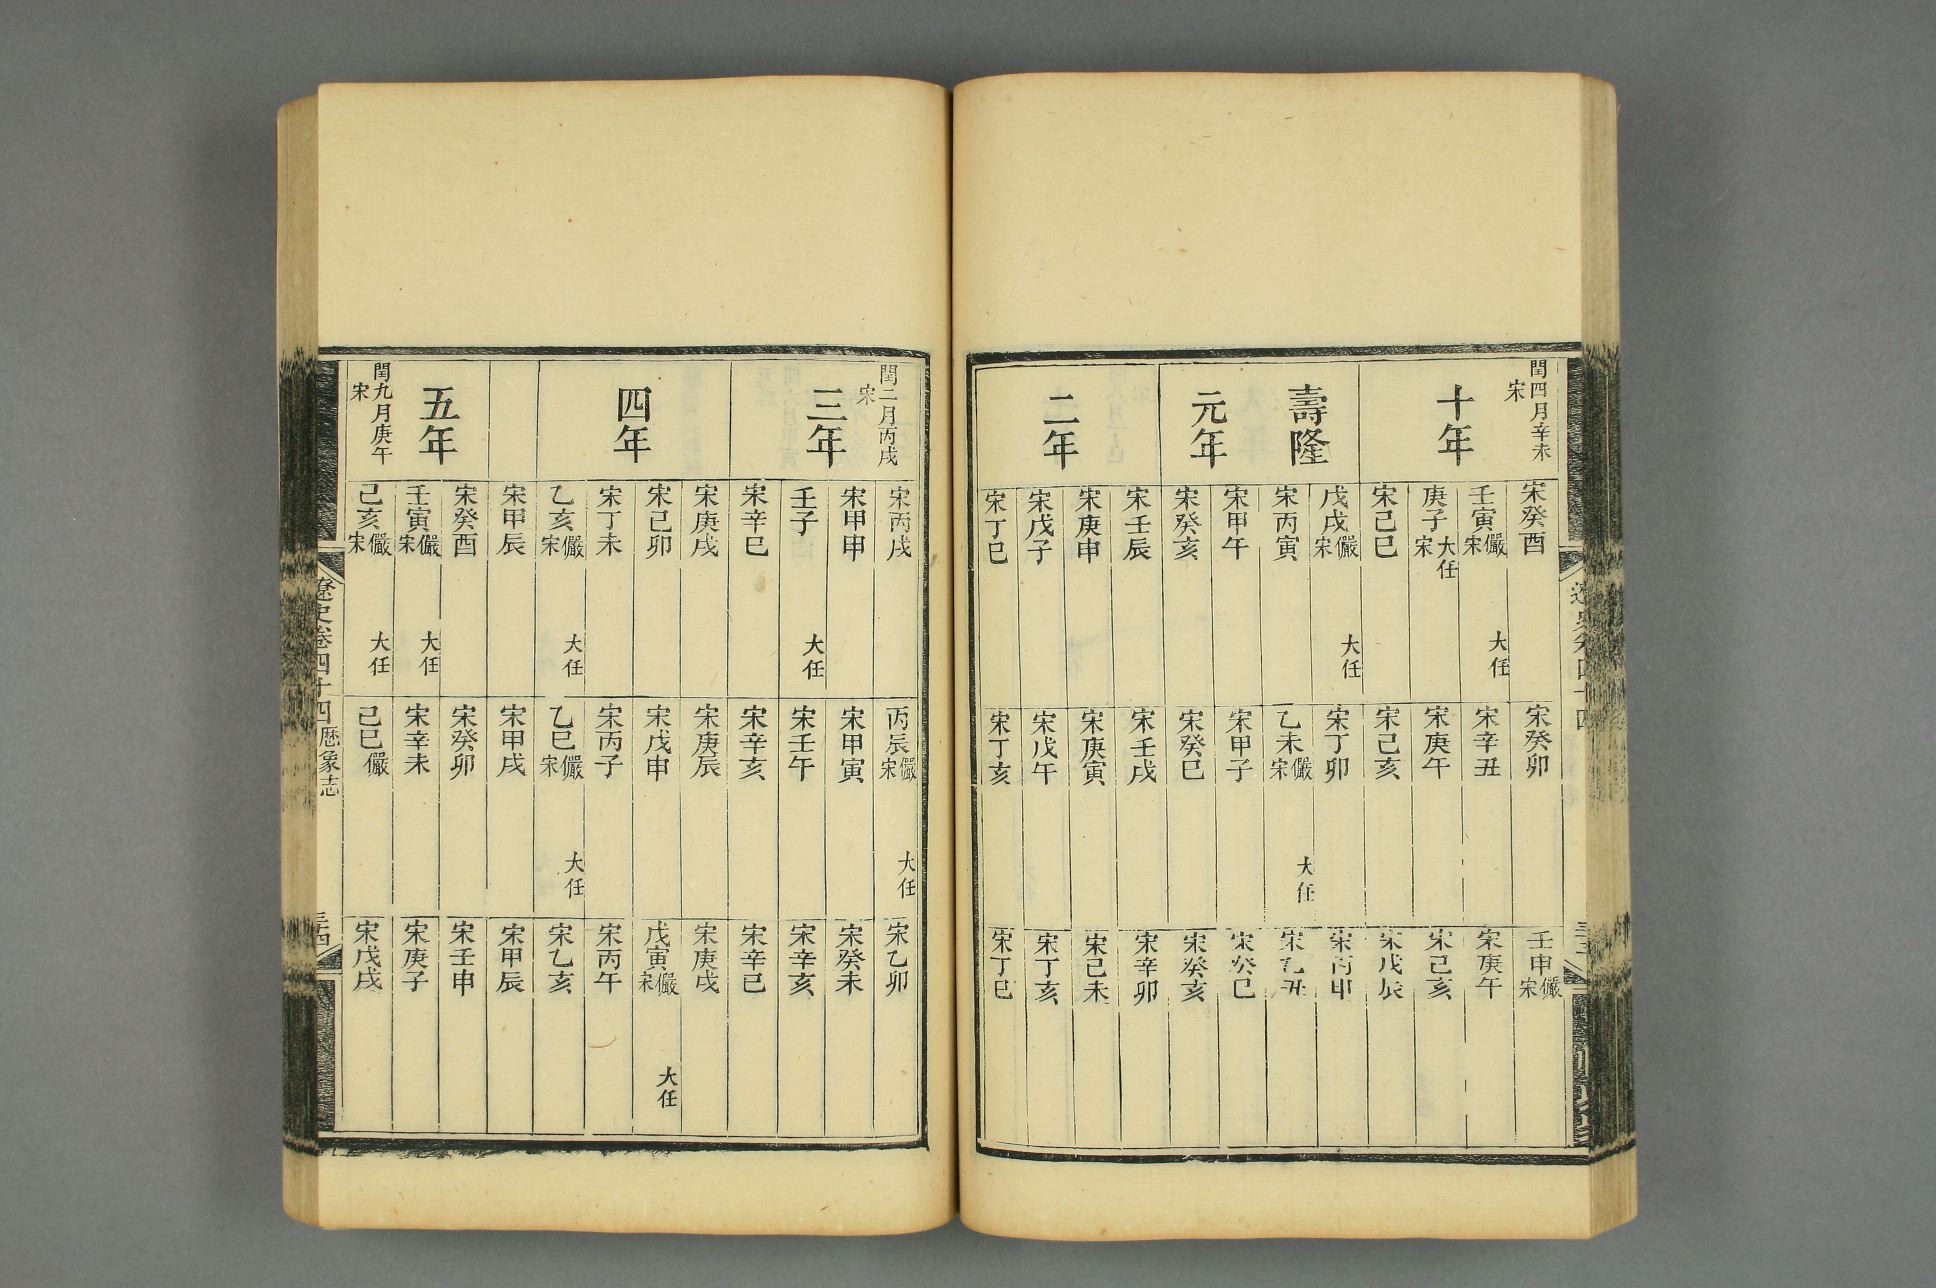 閏四月辛未
宋
宋癸酉
宋癸卯
壬申儼
宋
壬寅儼
宋
大任
宋辛丑
宋庚午
十年
庚子大任
宋
宋庚午
宋己亥
宋己巳
宋己亥
宋戊辰
壽隆
戊戌儼
宋
大任
宋丁卯
宋丙申
宋丙寅
乙未儼
宋
大任
宋乙丑
元年
宋甲午
宋甲子
宋癸巳
宋癸亥
宋癸巳
宋癸亥
宋壬辰
宋壬戌
宋辛卯
二年
宋庚申
宋庚寅
宋己未
宋戊子
宋戊午
宋丁亥
宋丁巳
宋丁亥
宋丁巳
閏二月丙戌
宋
宋丙戌
丙辰儼
宋
大任
宋乙卯
宋甲申
宋甲寅
宋癸未
三年
壬子
大任
宋壬午
宋辛亥
宋辛巳
宋辛亥
宋辛巳
宋庚戌
宋庚辰
宋庚戌
宋己卯
宋戊申
戊寅儼
宋
大任
四年
宋丁未
宋丙子
宋丙午
乙亥儼
宋
大任
乙巳儼
宋
大任
宋乙亥
宋甲辰
宋甲戌
宋甲辰
宋癸酉
宋癸卯
宋壬申
五年
壬寅儼
宋
大任
宋辛未
宋庚子
閏九月庚午
宋
己亥儼
宋
大任
己巳儼
宋戊戌
遼史卷四十四 曆象志
三十四